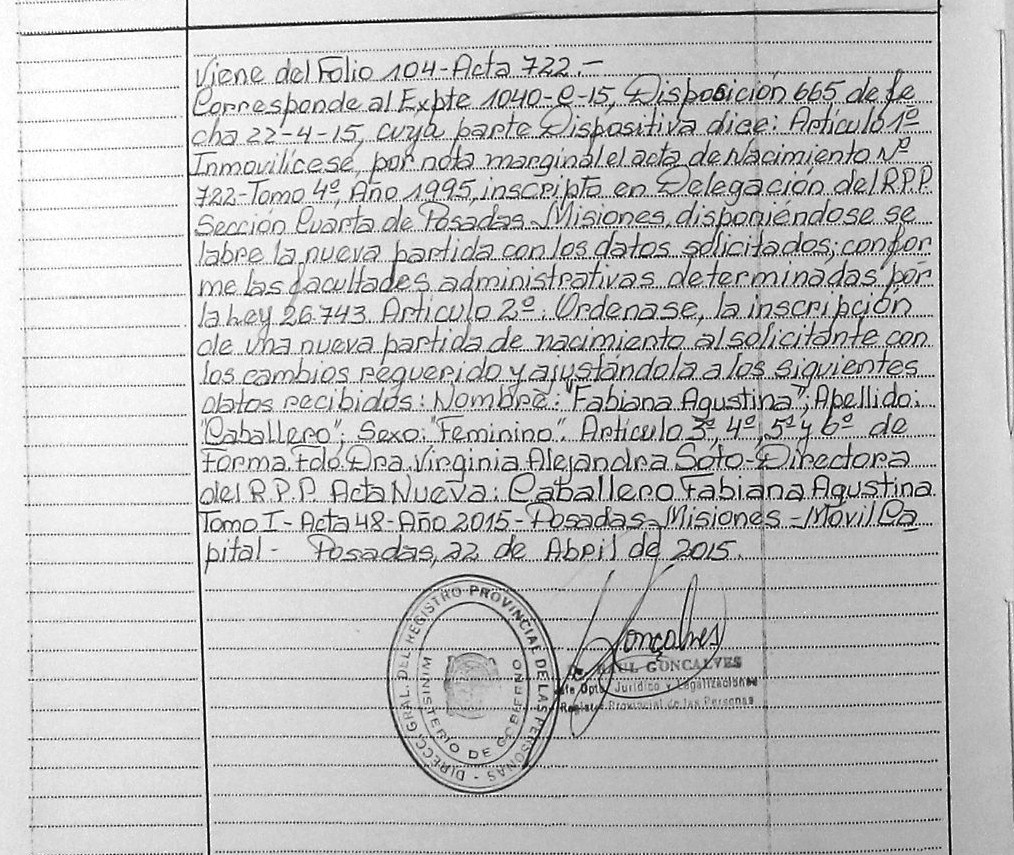 Viene del Folio 104-Acta 722.-
Corresponde al Expte 1040-C-15, Disposición 665 de fe
cha 22-4-15, cuya parte Dispositiva dice: Articulo 1º
Inmovilícese, por nota marginal el acta de Nacimiento Nº
722-Tomo 4º, Año 1995, inscripto en Delegación del R.P.P.
Sección Cuarta de Posadas-Misiones, disponiéndose se
labre la nueva partida con los datos solicitados; confor
me las facultades administrativas determinadas por
la Ley 26.743. Articulo 2º: Ordenase, la inscripción
de una nueva partida de nacimiento al solicitante con
los cambios requerido y ajustándola a los siguientes
datos recibidos: Nombre: "Fabiana Agustina"; Apellido:
"Caballero"; Sexo: "Feminino". Articulo 3º, 4º, 5º y 6º de
Forma. Fdo. Dra. Virginia Alejandra Soto-Directora
del R.P.P. Acta Nueva: Caballero Fabiana Agustina
Tomo I-Acta 48-Año 2015-Posadas-Misiones-Movil Ca
pital- Posadas, 22 de Abril de 2015.
DIRECC. GRAL. DEL REGISTRO PROVINCIAL DE LAS PERSONAS -
MINISTERIO DE GOBIERNO
Gonçalves
RAUL GONCALVES
Jefe Dpto. Jurídico y Legalizaciones
Registro Provincial de las Personas